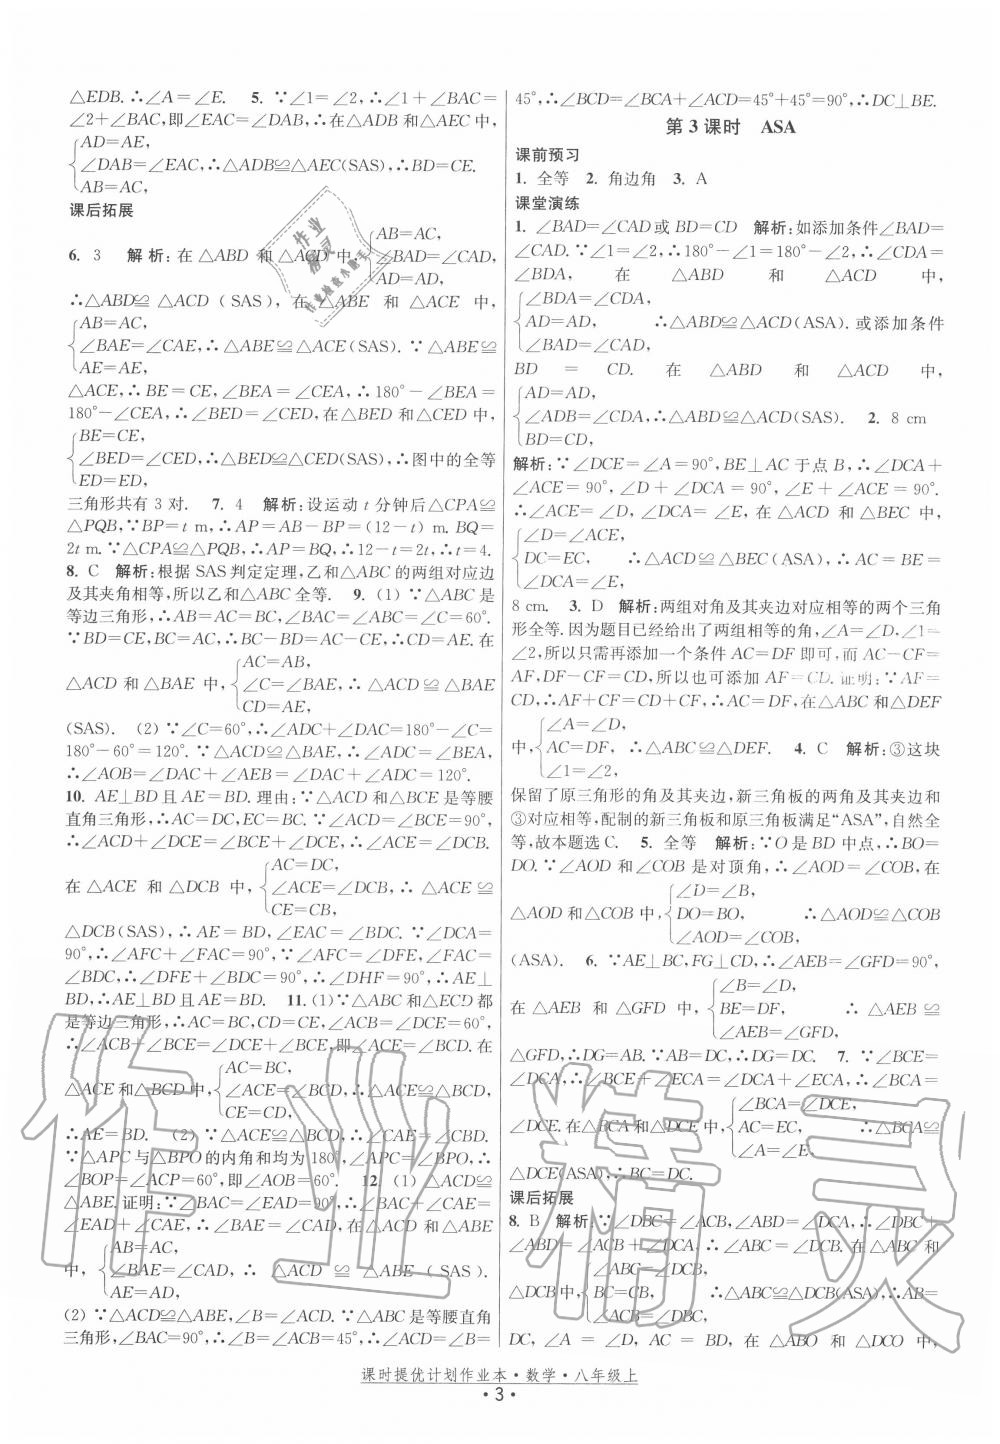 △EDB.∴∠A=∠E.　5. ∵∠1=∠2,∴∠1+∠BAC=
∠2+∠BAC,即∠EAC=∠DAB,∴在△ADB和△AEC中,
AD=AE,
∠DAB=∠EAC,∴△ADB≌△AEC(SAS),∴BD=CE.
AB=AC,
课后拓展
AB=AC,
6. 3　解析:在△ABD 和△ACD 中,∠BAD=∠CAD,
AD=AD,
∴△ABD≌△ACD(SAS),在△ABE 和△ACE 中,
AB=AC,
∠BAE=∠CAE,∴△ABE≌△ACE(SAS).∵△ABE≌
AE=AE,
△ACE,∴BE=CE,∠BEA=∠CEA,∴180°-∠BEA=
180°-∠CEA,∴∠BED=∠CED,在△BED和△CED中,
BE=CE,
∠BED=∠CED,∴△BED≌△CED(SAS),∴图中的全等
ED=ED,
三角形共有3对.　7. 4　解析:设运动t分钟后△CPA≌
△PQB,∵BP=t m,∴AP=AB-BP=(12-t) m.BQ=
2t m.∵△CPA≌△PQB,∴AP=BQ,∴12-t=2t,∴t=4.
8. C　解析:根据SAS判定定理,乙和△ABC的两组对应边
及其夹角相等,所以乙和△ABC全等.　9. (1)∵△ABC是
等边三角形,∴AB=AC=BC,∠BAC=∠ABC=∠C=60°.
∵BD=CE,BC=AC,∴BC-BD=AC-CE,∴CD=AE.在
AC=AB,
△ACD和△BAE中,∠C=∠BAE,∴△ACD≌△BAE
CD=AE,
(SAS).　(2)∵∠C=60°,∴∠ADC+∠DAC=180°-∠C=
180°-60°=120°.∵△ACD≌△BAE,∴∠ADC=∠BEA,
∴∠AOB=∠DAC+∠AEB=∠DAC+∠ADC=120°.
10. AE⊥BD且AE=BD.理由:∵△ACD和△BCE是等腰
直角三角形,∴AC=DC,EC=BC.∵∠ACD=∠BCE=90°,
∴∠ACD+∠DCE=∠BCE+∠DCE,∴∠ACE=∠DCB.
AC=DC,
在△ACE 和△DCB 中,∠ACE=∠DCB,∴△ACE≌
CE=CB,
△DCB(SAS),∴AE=BD,∠EAC=∠BDC.∵∠DCA=
90°,∴∠AFC+∠FAC=90°.∵∠DFE=∠AFC,∠FAC=
∠BDC,∴∠DFE+∠BDC=90°,∴∠DHF=90°,∴AE⊥
BD,∴AE⊥BD且AE=BD.　11. (1)∵△ABC和△ECD都
是等边三角形,∴AC=BC,CD=CE,∠ACB=∠DCE=60°,
∴∠ACB+∠BCE=∠DCE+∠BCE,即∠ACE=∠BCD.在
AC=BC,
△ACE和△BCD中,∠ACE=∠BCD,∴△ACE≌△BCD,
CE=CD,
∴AE=BD.　(2)∵△ACE≌△BCD,∴∠CAE=∠CBD.
∵△APC与△BPO的内角和均为180°,∠APC=∠BPO,∴
∠BOP=∠ACP=60°,即∠AOB=60°.　12. (1)△ACD≌
△ABE.证明:∵∠BAC=∠EAD=90°,∴∠BAC+∠CAE=
∠EAD+∠CAE,即∠BAE=∠CAD,在△ACD和△ABE
AB=AC,
中,∠BAE=∠CAD,∴△ACD≌△ABE(SAS).
AE=AD,
(2)∵△ACD≌△ABE,∠B=∠ACD.∵△ABC是等腰直角
三角形,∠BAC=90°,∴∠B=∠ACB=45°,∴∠ACD=∠B=
45°,∴∠BCD=∠BCA+∠ACD=45°+45°=90°,∴DC⊥BE.
第3课时　ASA
课前预习
1. 全等　2. 角边角　3. A
课堂演练
1. ∠BAD=∠CAD或BD=CD　解析:如添加条件∠BAD=
∠CAD.∵∠1=∠2,∴180°-∠1=180°-∠2,∴∠CDA=
∠BDA,在△ABD和△ACD中,
∠BDA=∠CDA,
AD=AD,　∴△ABD≌△ACD(ASA).或添加条件
∠BAD=∠CAD,
BD=CD.在△ABD和△ACD中,
AD=AD,
∠ADB=∠CDA,∴△ABD≌△ACD(SAS).　2. 8 cm
BD=CD,
解析:∵∠DCE=∠A=90°,BE⊥AC于点B,∴∠DCA+
∠ACE=90°,∠D+∠DCA=90°,∠E+∠ACE=90°.
∴∠ACE=∠D,∠DCA=∠E,在△ACD和△BEC中,
∠D=∠ACE,
DC=EC,　∴△ACD≌△BEC(ASA),∴AC=BE=
∠DCA=∠E,
8 cm.　3. D　解析:两组对角及其夹边对应相等的两个三角
形全等.因为题目已经给出了两组相等的角,∠A=∠D,∠1=
∠2,所以只需再添加一个条件AC=DF即可,而AC-CF=
AF,DF-CF=CD,所以也可添加AF=CD.证明:∵AF=
CD,∴AF+CF=CD+CF,∴AC=DF,在△ABC和△DEF
∠A=∠D,
中,AC=DF,∴△ABC≌△DEF.　4. C　解析:③这块
∠1=∠2,
保留了原三角形的角及其夹边,新三角板的两角及其夹边和
③对应相等,配制的新三角板和原三角板满足“ASA”,自然全
等,故本题选C.　5. 全等　解析:∵O是BD中点,∴BO=
DO.∵∠AOD和∠COB是对顶角,∴∠AOD=∠COB,在
∠D=∠B,
△AOD和△COB中,DO=BO,　∴△AOD≌△COB
∠AOD=∠COB,
(ASA).　6. ∵AE⊥BC,FG⊥CD,∴∠AEB=∠GFD=90°,
∠B=∠D,
在△AEB 和△GFD 中,BE=DF,　∴△AEB≌
∠AEB=∠GFD,
△GFD,∴DG=AB.∵AB=DC,∴DG=DC.　7. ∵∠BCE=
∠DCA,∴∠BCE+∠ECA=∠DCA+∠ECA,∴∠BCA=
∠BCA=∠DCE,
∠DCE.在△BCA和△DCE中,AC=EC,　∴△BCA≌
∠A=∠E,
△DCE(ASA),∴BC=DC.
课后拓展
8. B　解析:∵∠DBC=∠ACB,∠ABD=∠DCA,∴∠DBC+
∠ABD=∠ACB+∠DCA,∴∠ABC=∠DCB.在△ABC和
∠ABC=∠DCB,
△DCB中,BC=CB,　∴△ABC≌△DCB(ASA),∴AB=
∠ACB=∠DBC,
DC,∠A=∠D,AC=BD,在△ABO和△DCO中,
课时提优计划作业本·数学·八年级上
·3·
作业精灵
作业精灵